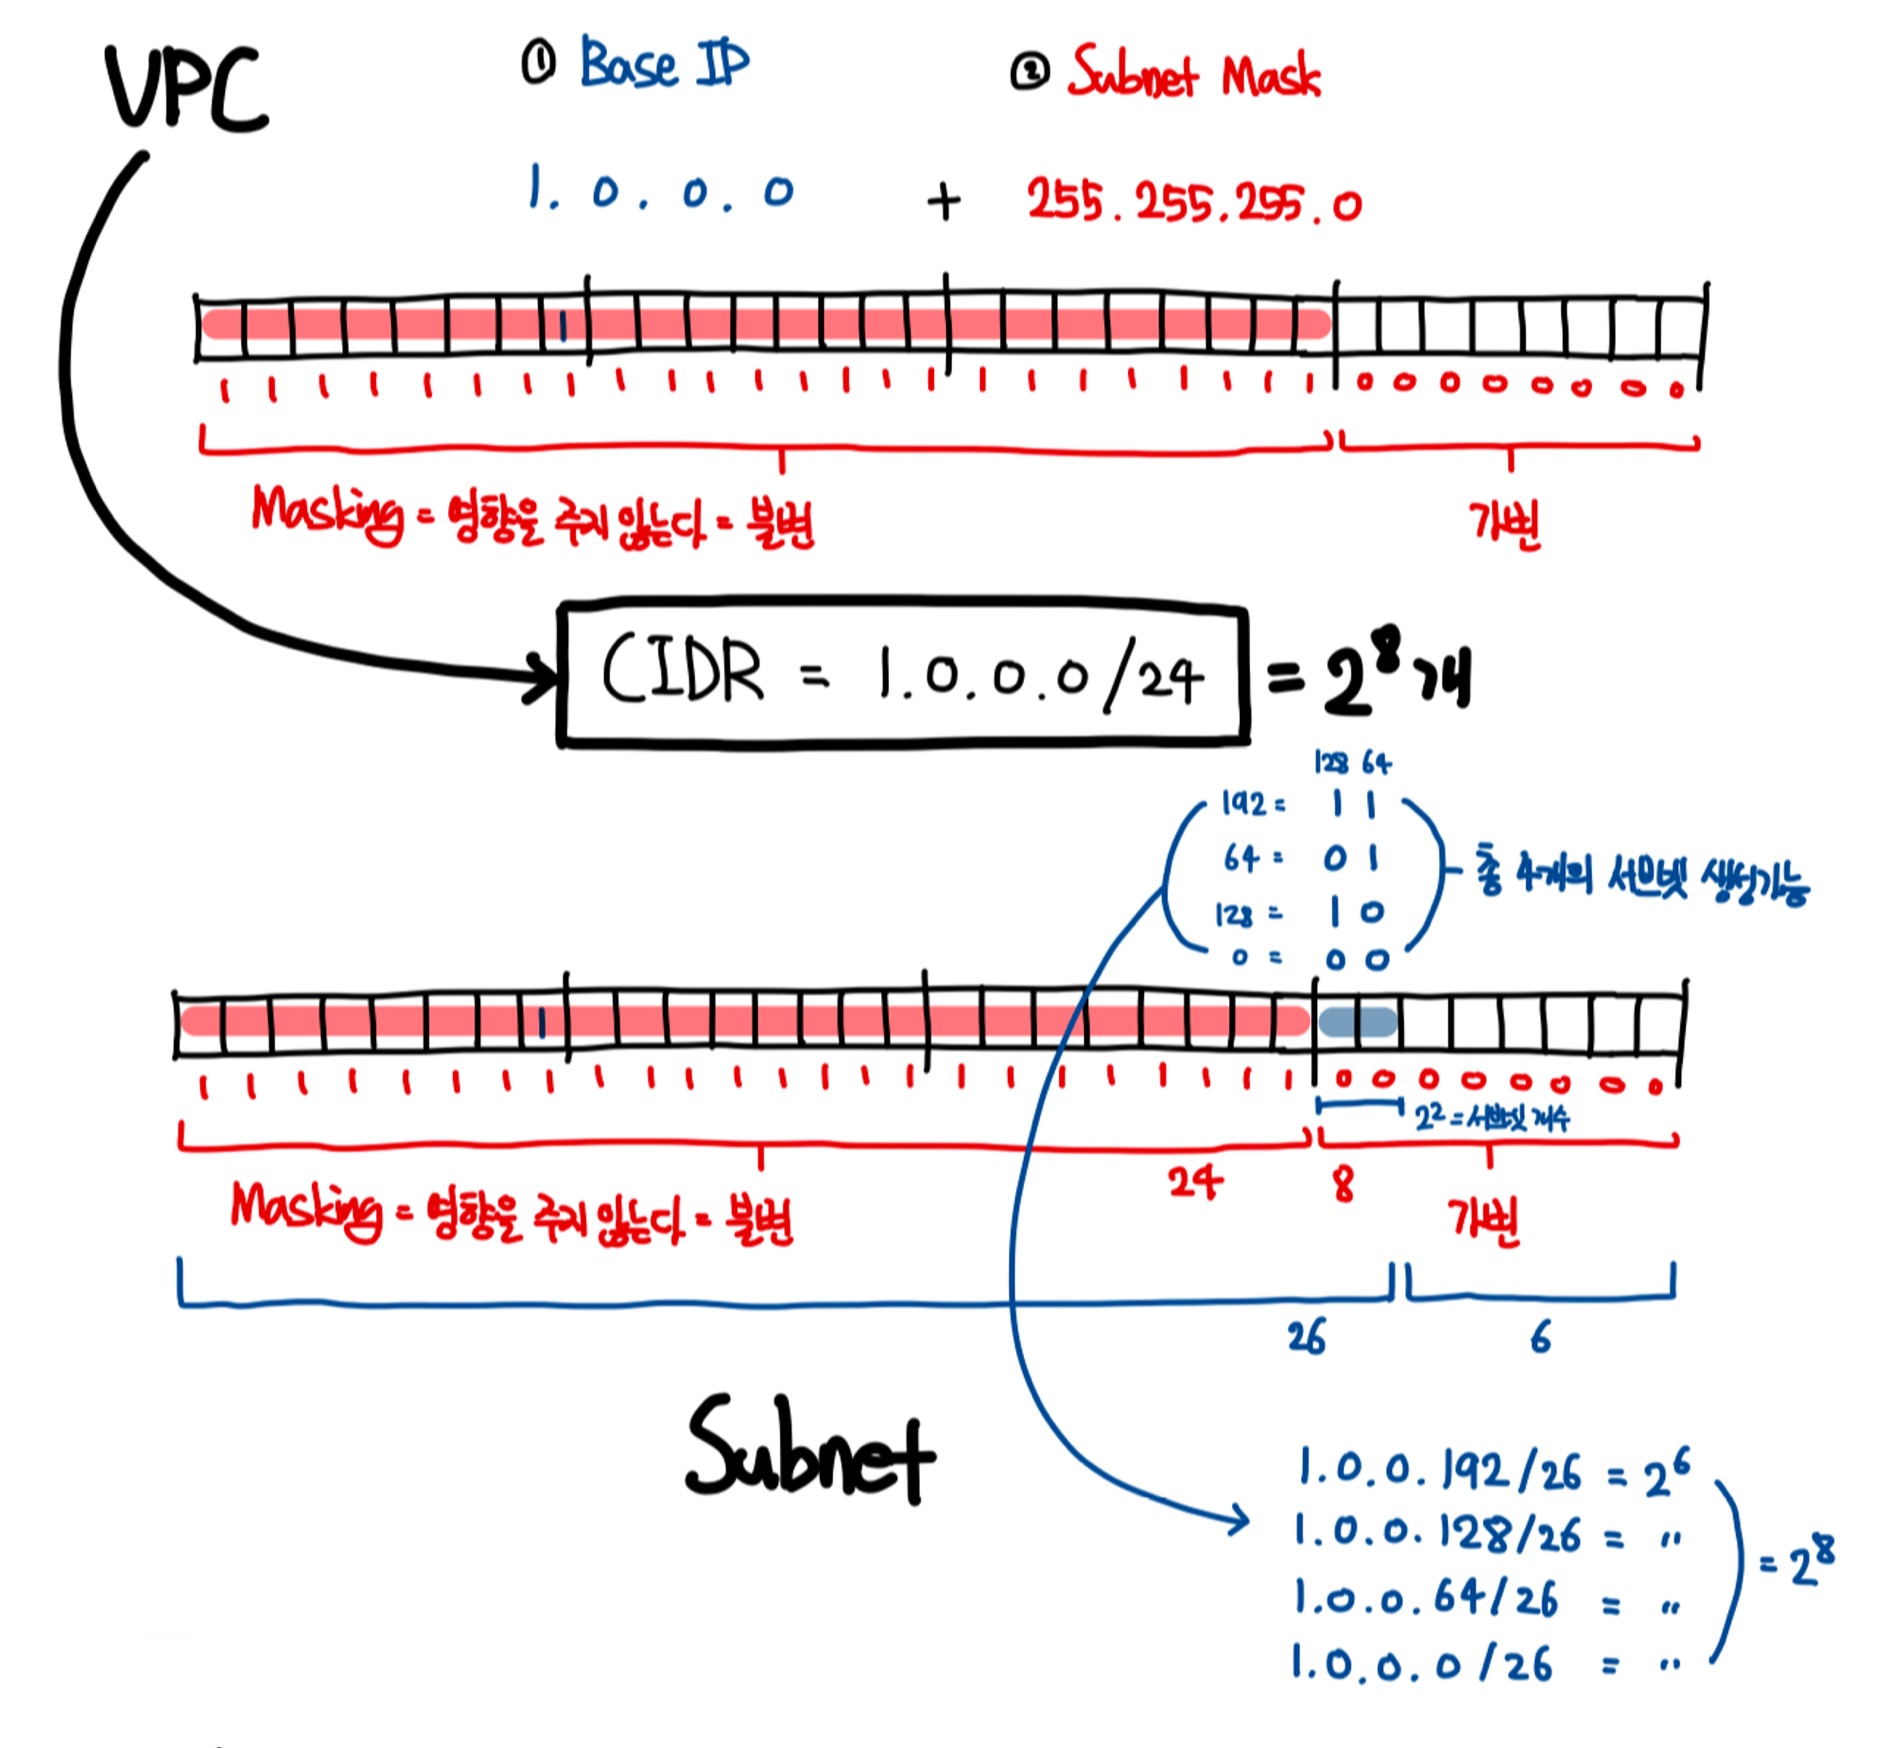 VPC
① Base IP
② Subnet Mask
1. 0 . 0 . 0 + 255.255.255.0
1 1 1 1 1 1 1 1 1 1 1 1 1 1 1 1 1 1 1 1 1 1 1 1 0 0 0 0 0 0 0 0
Masking = 영향을 주지 않는다 = 불변
가변
CIDR = 1.0.0.0/24 = 2⁸개
128 64
192 = 1 1
64 = 0 1
128 = 1 0
0 = 0 0
총 4개의 서브넷 생성가능
1 1 1 1 1 1 1 1 1 1 1 1 1 1 1 1 1 1 1 1 1 1 1 1 0 0 0 0 0 0 0 0
2² = 서브넷 개수
24 8
Masking = 영향을 주지 않는다 = 불변
가변
26 6
Subnet
1.0.0.192/26 = 2⁶
1.0.0.128/26 = "
1.0.0.64/26 = "
1.0.0.0/26 = "
= 2⁸